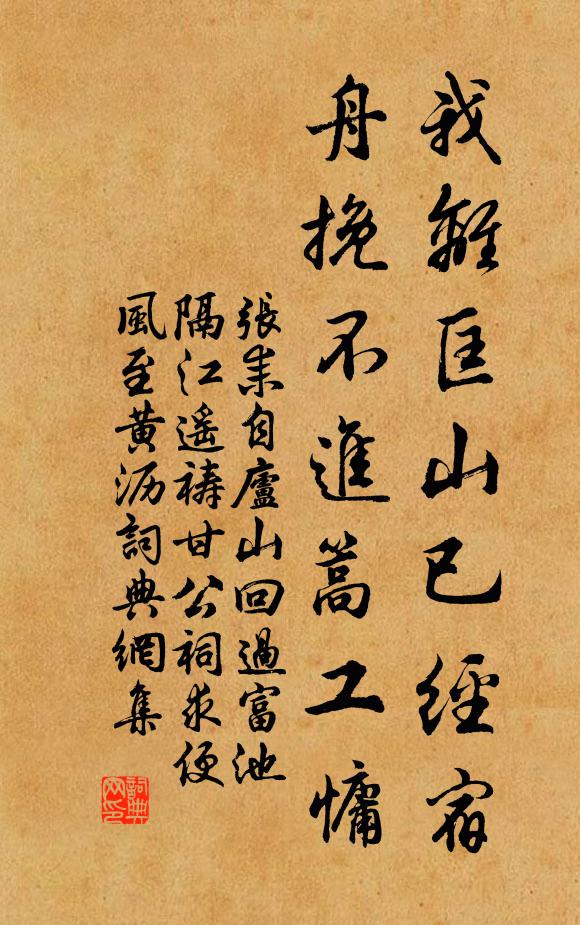 我離匡山已經宿
舟挽不進蒿工慵
張耒自廬山回過富池
隔江遙禱甘公祠求便
風至黄沥詞典網集
詞典网印